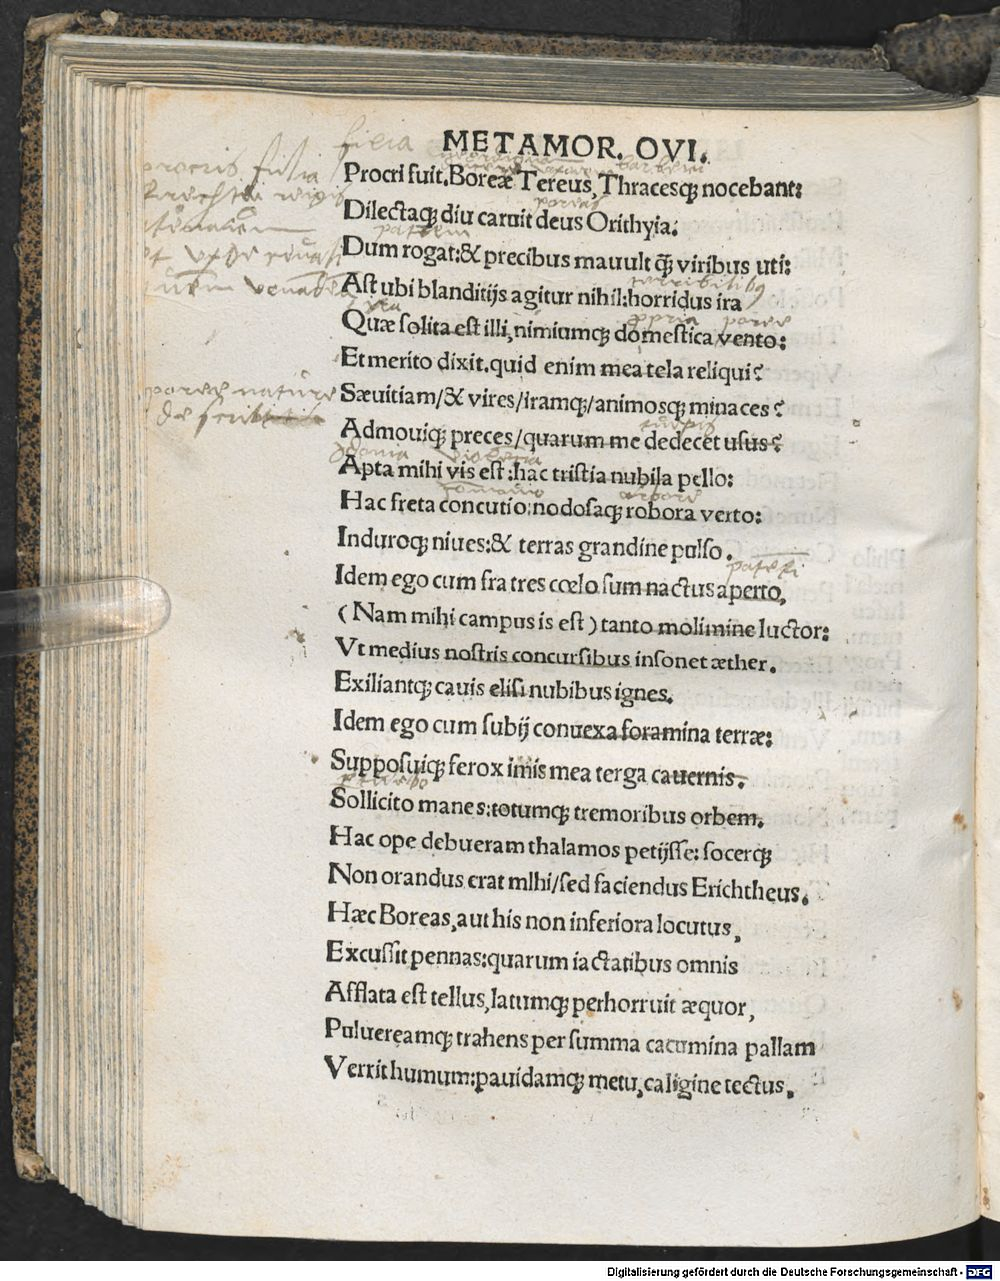 METAMOR. OVI.
filia
procris filia
Procri fuit. Boreæ Tereus, Thracesqꝫ nocebant:
poreas
Dilectaqꝫ diu caruit deus Orithyia:
Dum rogat: & precibus mauult q̃ꝫ viribus uti:
Ast ubi blanditijs agitur nihil: horridus ira
ppria poree
Quæ solita est illi, nimiumqꝫ domestica vento:
Et merito dixit. quid enim mea tela reliqui?
poree nature
Sæuitiam/& vires/iramqꝫ/animosqꝫ minaces?
turpis
Admouiqꝫ preces/quarum me dedecet usus?
ydonia violentia
Apta mihi vis est: hac tristia nubila pello:
arbore
Hac freta concutio: nodosaqꝫ robora verto:
Induroqꝫ niues: & terras grandine pulso.
Idem ego cum fra tres cœlo sum nactus aperto,
(Nam mihi campus is est) tanto molimine luctor:
Vt medius nostris concursibus insonet æther.
Exiliantqꝫ cauis elisi nubibus ignes.
Idem ego cum subij conuexa foramina terræ:
Supposuiqꝫ ferox imis mea terga cauernis.
Sollicito manes: totumqꝫ tremoribus orbem.
Hac ope debueram thalamos petijsse: socerqꝫ
Non orandus erat mlhi/sed faciendus Erichtheus.
Hæc Boreas, aut his non inferiora locutus,
Excussit pennas: quarum iactatibus omnis
Afflata est tellus, latumqꝫ perhorruit æquor,
Puluereamqꝫ trahens per summa cacumina pallam
Verrit humum: pauidamqꝫ metu, caligine tectus.
Digitalisierung gefördert durch die Deutsche Forschungsgemeinschaft - DFG